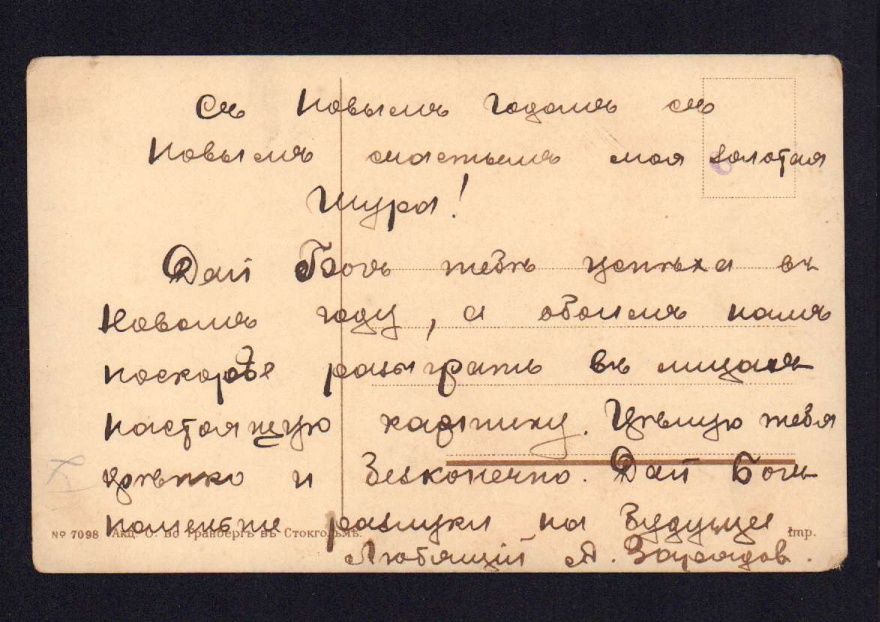 Съ Новымъ Годомъ съ
Новымъ счастьемъ моя золотая
Шура!
Дай Богъ тебѣ успѣха въ
Новомъ году, а обоимъ намъ
поскорѣе разыграть въ лицахъ
настоящую картинку. Цѣлую тебя
крѣпко и безконечно. Дай Богъ
поменьше разлуки на будущее
№ 7098 Акц. О. во Гранбергъ въ Стокгольмѣ. imp.
Любящій А.